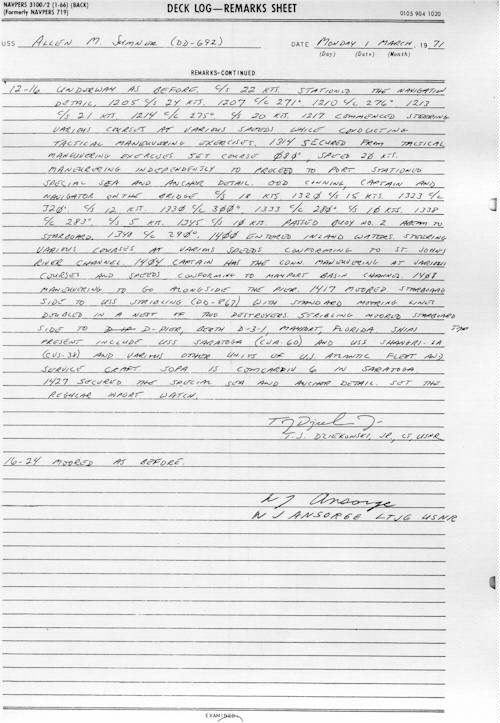 NAVPERS 3100/2 (1-66) (BACK)
(Formerly NAVPERS 719)
DECK LOG—REMARKS SHEET
0105 904 1020
USS ALLEN M. SUMNER (DD-692) DATE MONDAY 1 MARCH, 19 71
(Day) (Date) (Month)
REMARKS—CONTINUED
12-16 UNDERWAY AS BEFORE, C/S 22 KTS. STATIONED THE NAVIGATION
DETAIL. 1205 C/S 24 KTS. 1207 C/C 271° 1210 C/C 276° 1213
C/S 21 KTS. 1214 C/C 275° C/S 20 KTS. 1217 COMMENCED STEERING
VARIOUS COURSES AT VARIOUS SPEEDS WHILE CONDUCTING
TACTICAL MANEUVERING EXERCISES. 1314 SECURED FROM TACTICAL
MANEUVERING EXERCISES. SET COURSE Ø8Ø° SPEED 2Ø KTS.
MANEUVERING INDEPENDENTLY TO PROCEED TO PORT. STATIONED
SPECIAL SEA AND ANCHOR DETAIL. OOD CONNING, CAPTAIN AND
NAVIGATOR ON THE BRIDGE C/S 18 KTS. 132Ø C/S 15 KTS. 1323 C/C
32Ø° C/S 12 KTS. 133Ø C/C 3ØØ° 1333 C/C 28Ø° C/S 1Ø KTS. 1338
C/C 283°. C/S 5 KT. 1345 C/S 1Ø KT. PASSED BUOY NO. 2 ABEAM TO
STARBOARD. 1348 C/C 29Ø°. 14ØØ ENTERED INLAND WATERS. STEERING
VARIOUS COURSES AT VARIOUS SPEEDS CONFORMING TO ST. JOHNS
RIVER CHANNEL. 14Ø4 CAPTAIN HAS THE CONN. MANEUVERING AT VARIOUS
COURSES AND SPEEDS CONFORMING TO MAYPORT BASIN CHANNEL. 14Ø8
MANEUVERING TO GO ALONGSIDE THE PIER. 1417 MOORED STARBOARD
SIDE TO USS STRIBLING (DD-867) WITH STANDARD MOORING LINES
DOUBLED IN A NEST OF TWO DESTROYERS. STRIBLING MOORED STARBOARD
SIDE TO D-PIER, BERTH D-3-1, MAYPORT, FLORIDA. SHIPS
PRESENT INCLUDE USS SARATOGA (CVA-60) AND USS SHANGRI-LA
(CVS-38) AND VARIOUS OTHER UNITS OF U.S. ATLANTIC FLEET AND
SERVICE CRAFT. SOPA IS COMCARDIV 6 IN SARATOGA
1427 SECURED THE SPECIAL SEA AND ANCHOR DETAIL. SET THE
REGULAR INPORT WATCH.
T. J. DZIEKONSKI, JR, LT, USNR
16-24 MOORED AS BEFORE.
W J Ansorge
W J ANSORGE LTJG USNR
EXAMINED